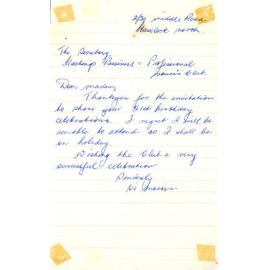 Middle Road
Havelock North.
The Secretary
Hastings Business & Professional
Women's Club.
Dear Madam,
Thankyou for the invitation
to share your 21st birthday
celebrations. I regret I will be
unable to attend as I shall be
on holiday.
Wishing the Club a very
successful celebration